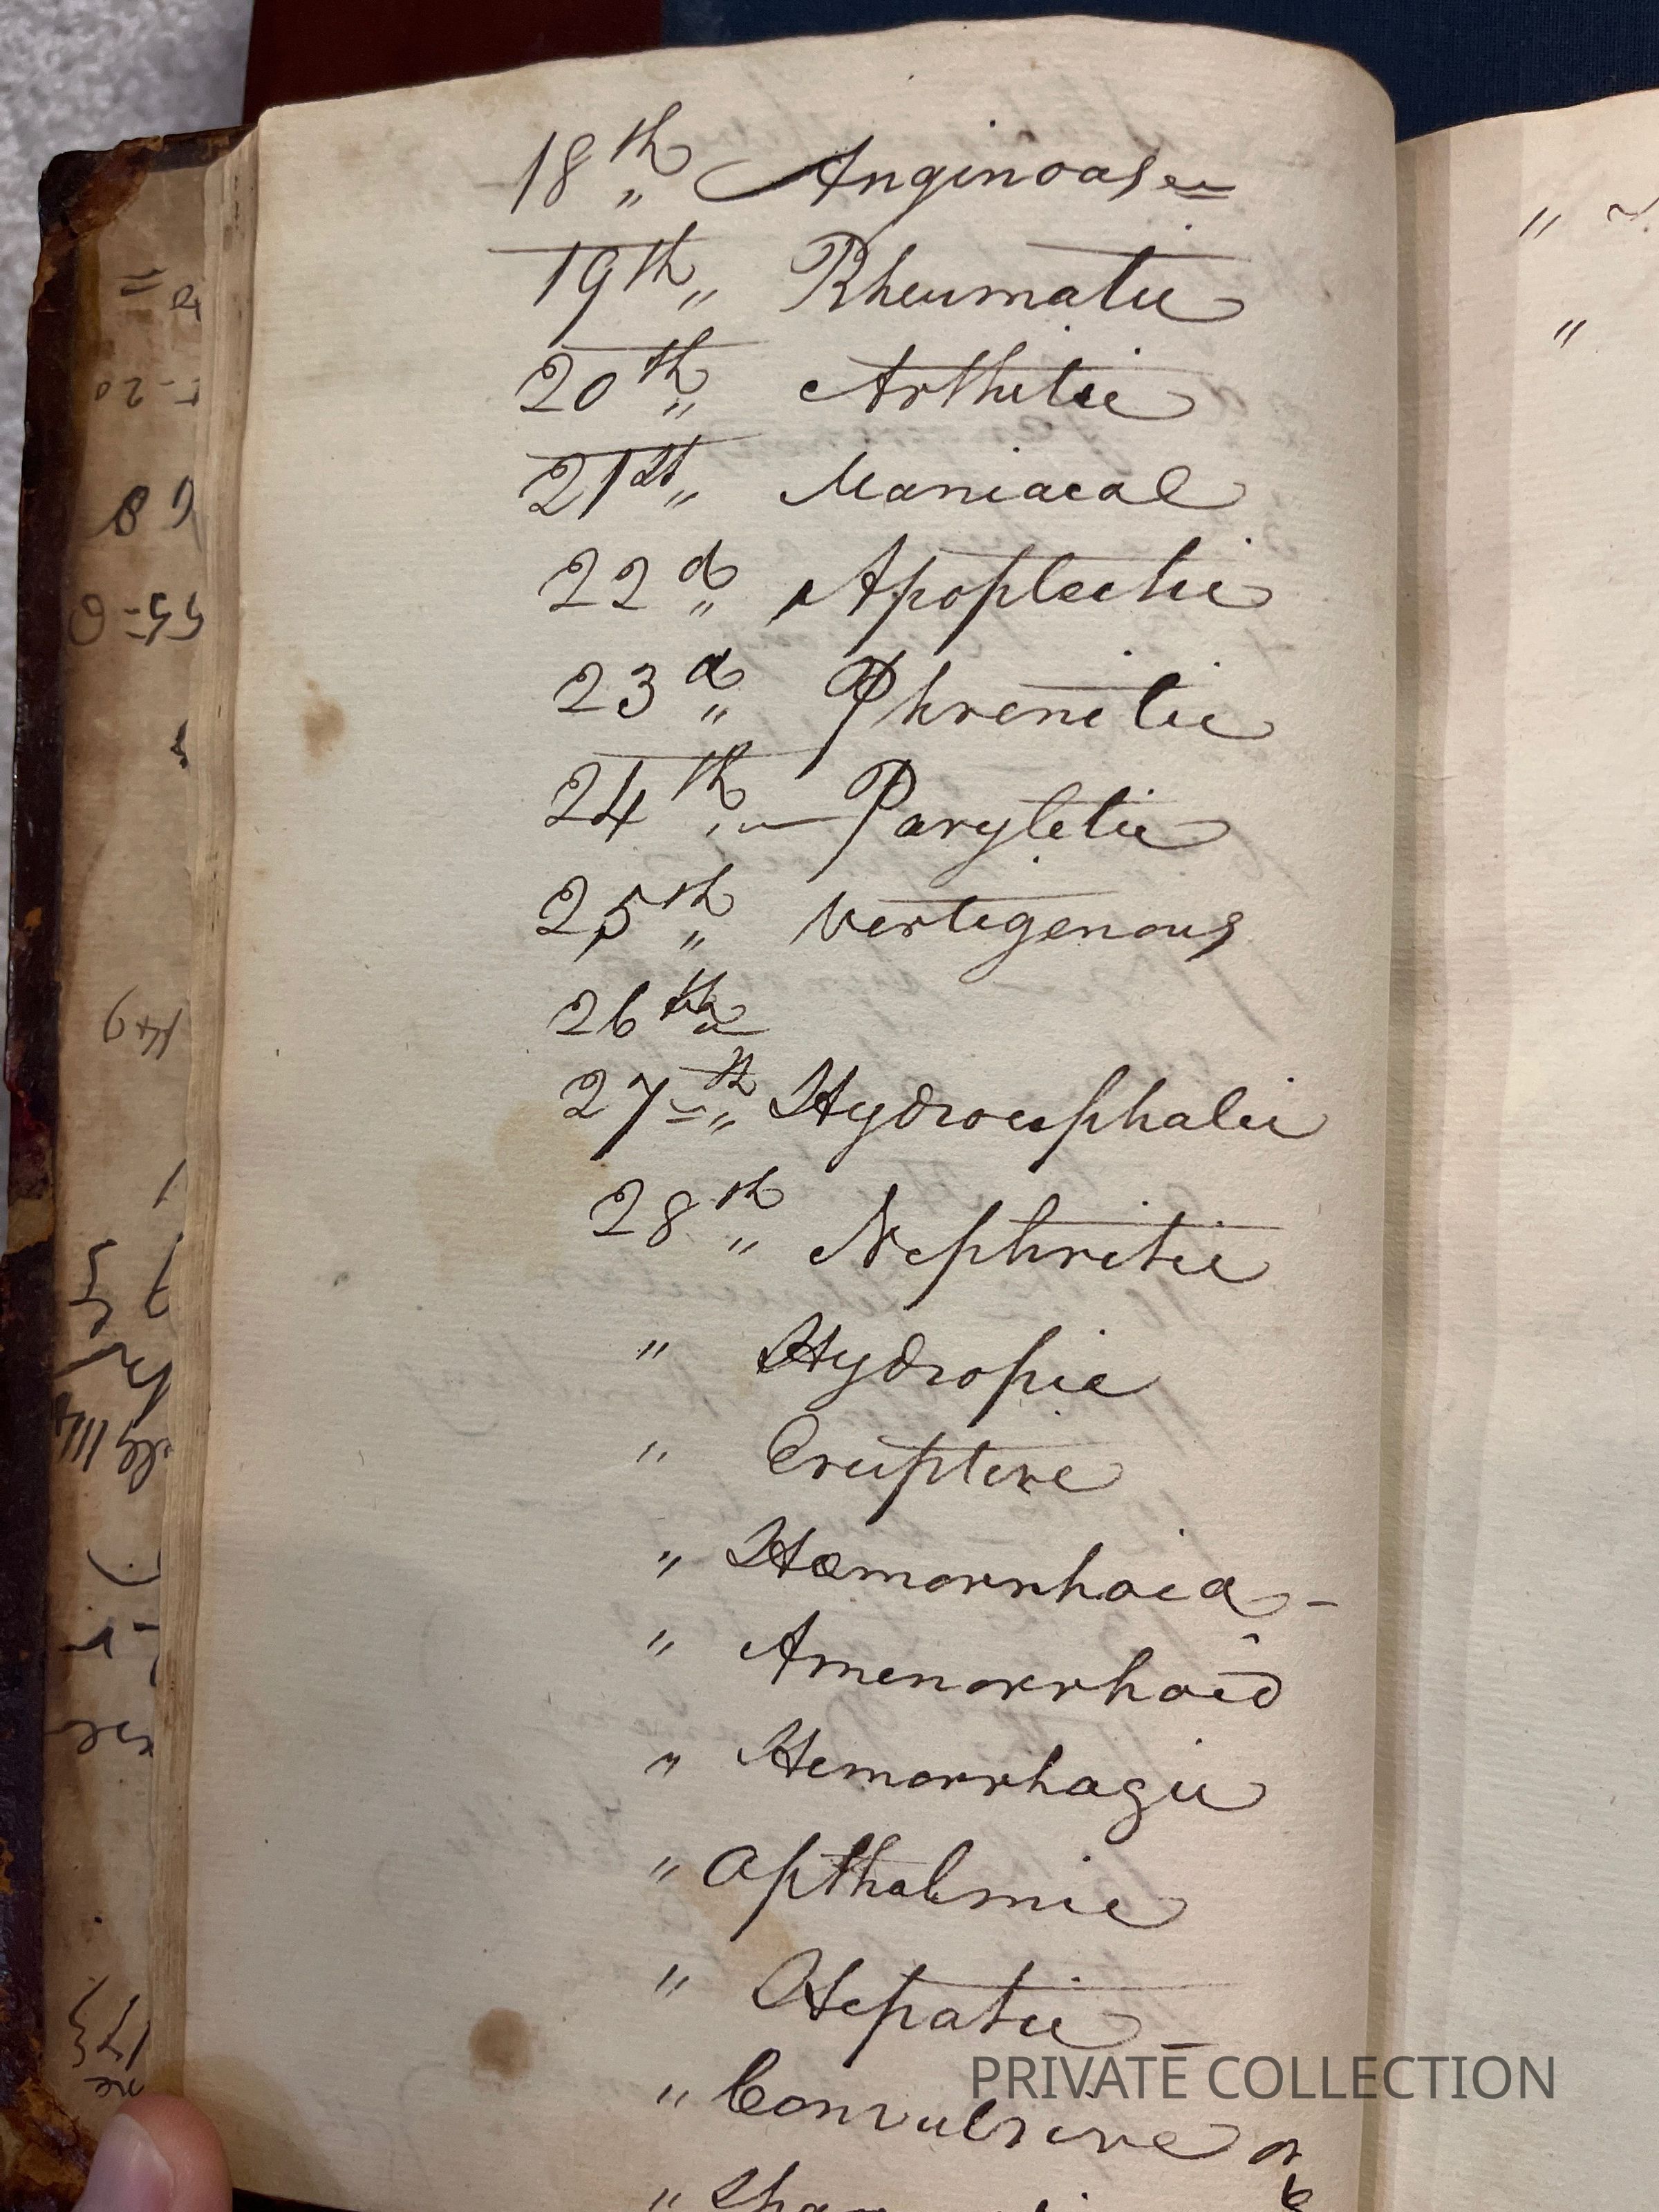 18th " Anginose
19th " Rheumatic
20th " Arthitic
21st " Maniacal
22d " Apoplectic
23d " Phrenitic
24th " Paryletic
25th " Vertegenous
26th "
27th " Hydrocephalic
28th " Nephritic
" Hydropic
" Eruptive
" Hæmorrhoid
" Amenorrhoid
" Hemorrhagic
" Opthalmic
" Hepatic
" Convulsive or
PRIVATE COLLECTION